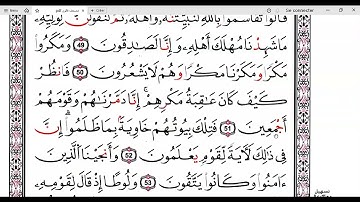 Se connecter
قَالُوا تَقَاسَمُوا بِاللَّهِ لَنُبَيِّتَنَّهُ وَأَهْلَهُ ثُمَّ لَنَقُولَنَّ لِوَلِيِّهِ
مَا شَهِدْنَا مَهْلِكَ أَهْلِهِ وَإِنَّا لَصَٰدِقُونَ 49 وَمَكَرُوا
مَكْرًا وَمَكَرْنَا مَكْرًا وَهُمْ لَا يَشْعُرُونَ 50 فَانظُرْ
كَيْفَ كَانَ عَٰقِبَةُ مَكْرِهِمْ إِنَّا دَمَّرْنَٰهُمْ وَقَوْمَهُمْ
أَجْمَعِينَ 51 فَتِلْكَ بُيُوتُهُمْ خَاوِيَةً بِمَا ظَلَمُوا إِنَّ
فِي ذَٰلِكَ لَآيَةً لِّقَوْمٍ يَعْلَمُونَ 52 وَأَنجَيْنَا الَّذِينَ
ءَامَنُوا وَكَانُوا يَتَّقُونَ 53 وَلُوطًا إِذْ قَالَ لِقَوْمِهِ